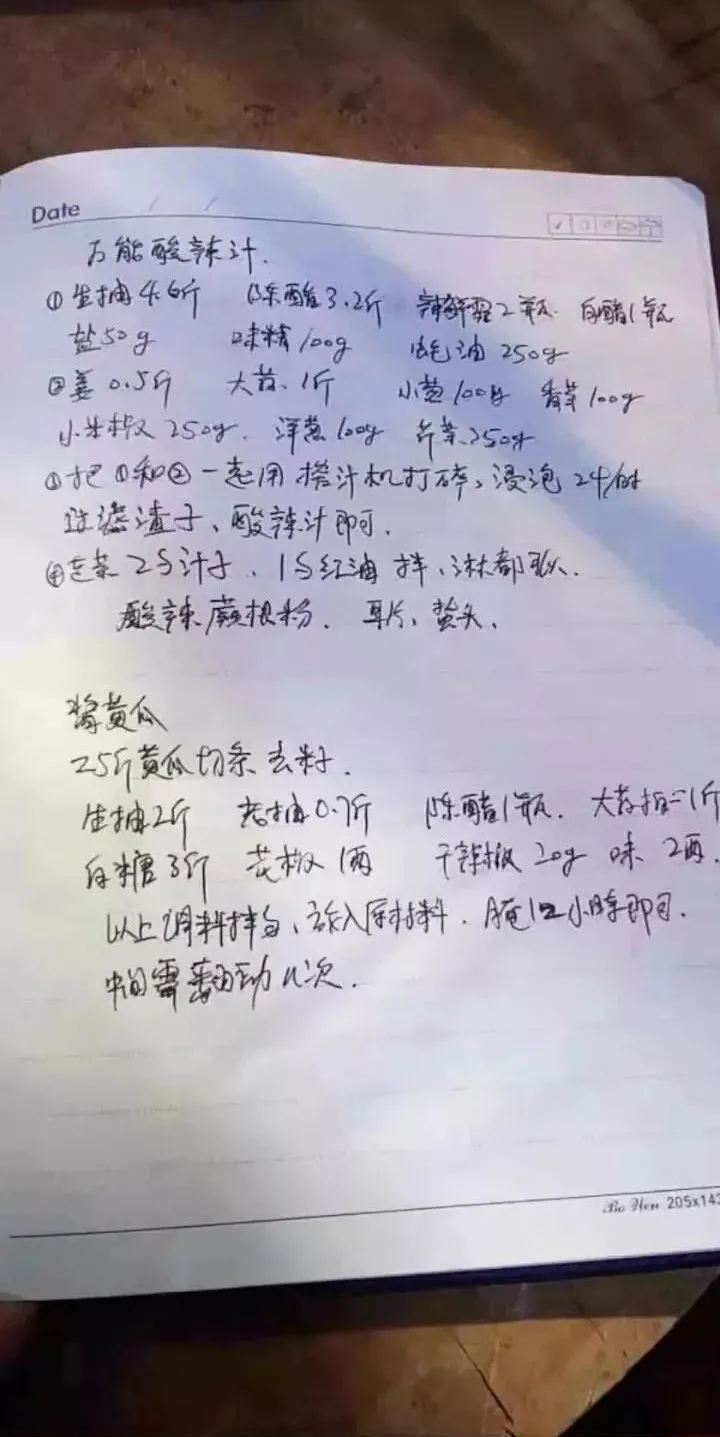 Date / /
万能酸辣汁.
①生抽4.6斤 陈醋3.2斤 辣鲜露2瓶. 白醋1瓶
盐50g 味精100g 蚝油250g
②姜0.5斤 大蒜.1斤 小葱100g 香菜100g
小米椒250g. 洋葱100g 芹菜250g
③把①和②一起用榨汁机打碎,浸泡24小时
过滤渣子、酸辣汁即可.
④走菜25汁子、15红油拌、淋都可以.
酸辣蕨根粉. 耳片、蜇头、
酱黄瓜
25斤黄瓜切条去籽.
生抽2斤 老抽0.7斤 陈醋1瓶. 大蒜 1斤
白糖3斤 花椒1两 干辣椒20g 味 2两.
以上调料拌匀、放入原材料. 腌12小时即可.
中间需翻动几次.
Bo Wen 205x142